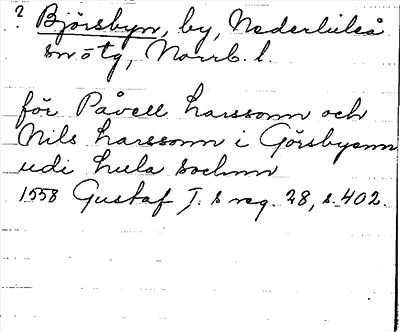 ? Björsbyn, by, Nederluleå
sn o tg, Norrb. l.
för Påvell harssonn och
Nils harssonn i Görsbyenn
udi hula sochnn
1558 Gustaf I. s reg. 28, s. 402.